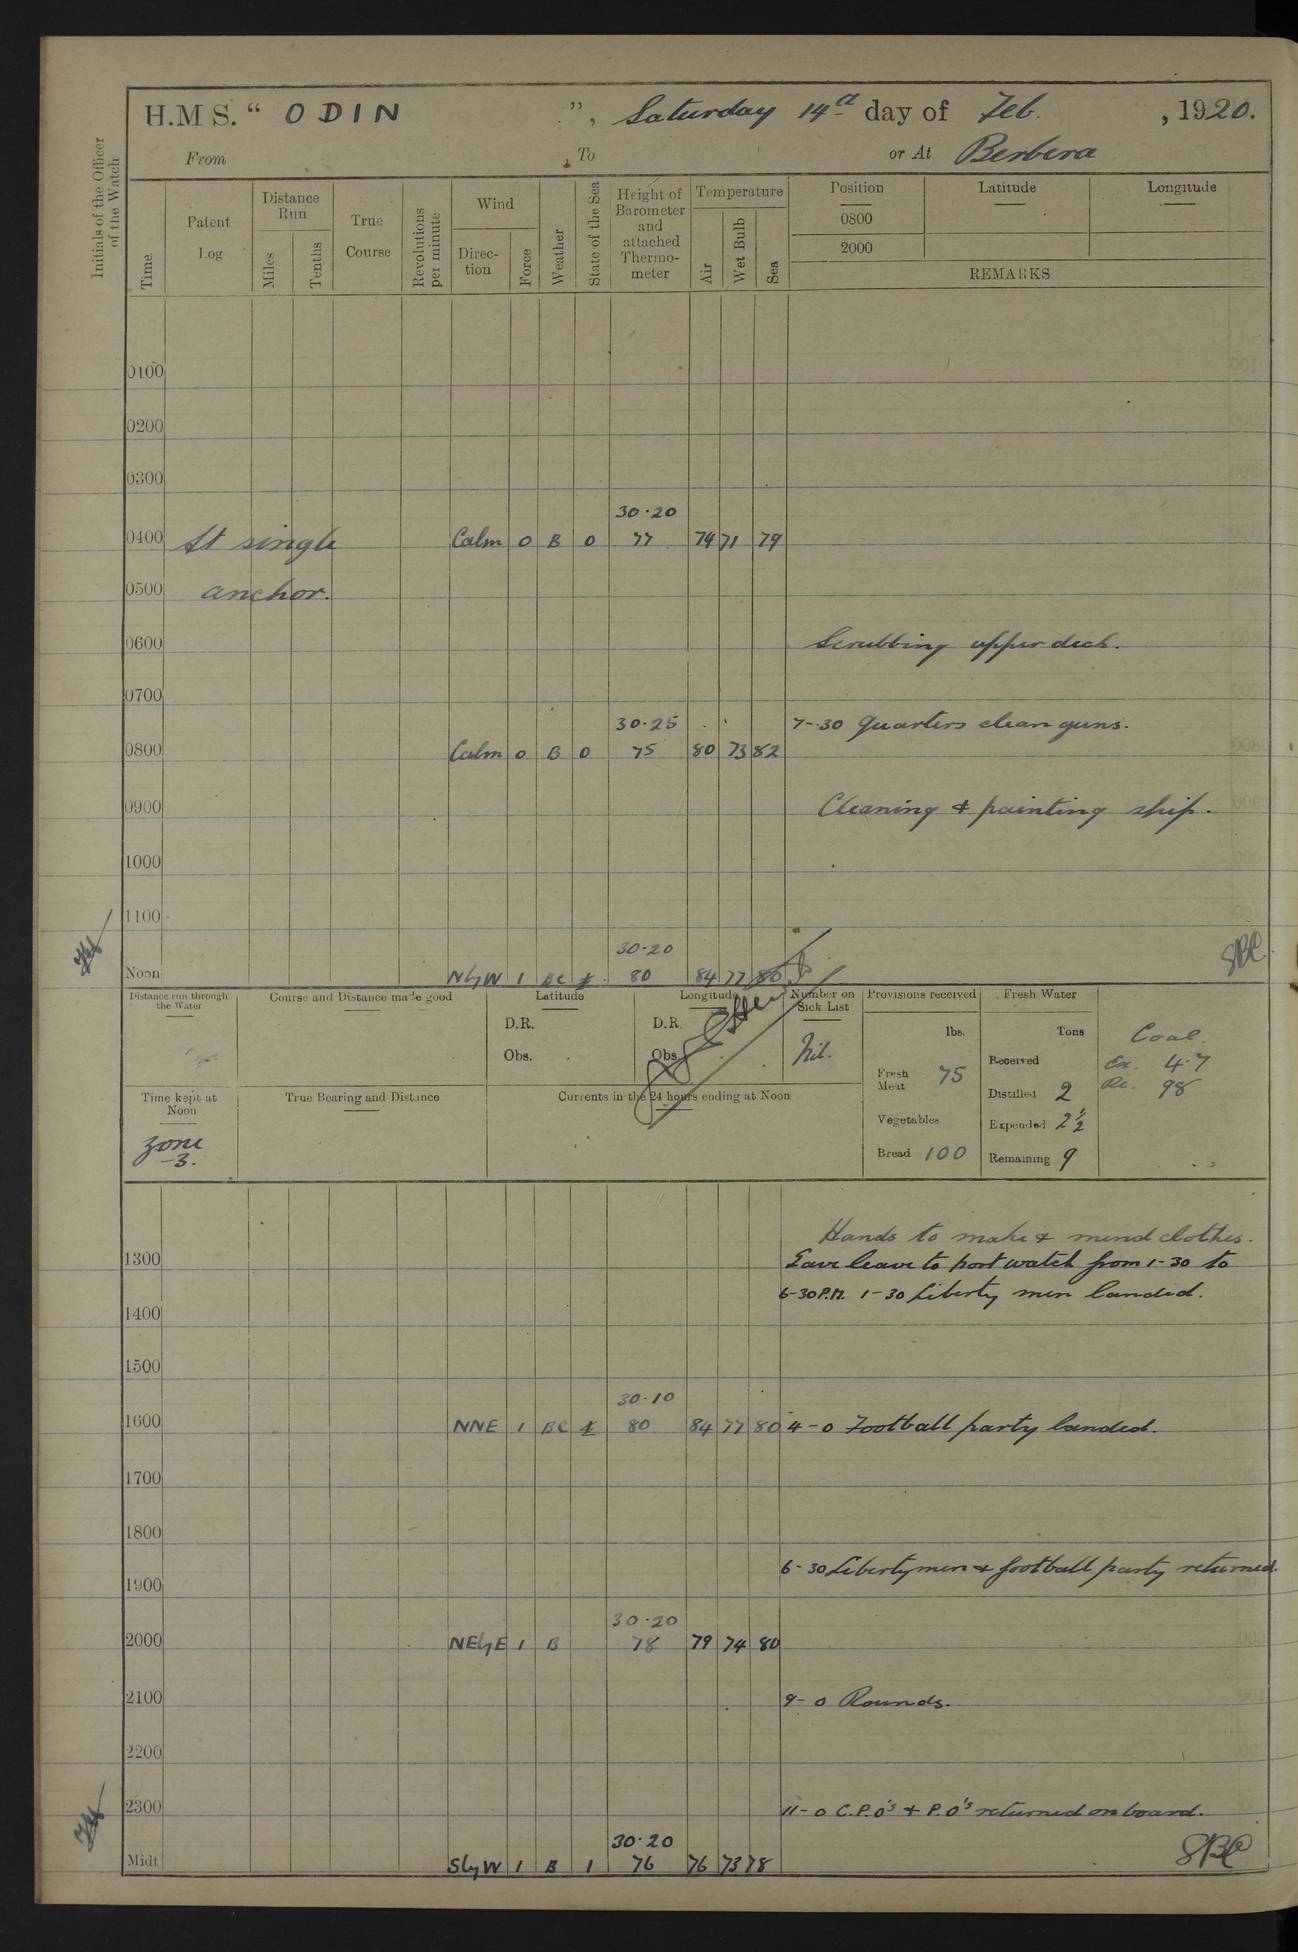 H.M S. “ ODIN ”, Saturday 14th day of Feb. , 1920.
From , To or At Berbera
Initials of the Officer of the Watch
Time
Patent Log
Distance Run
Miles
Tenths
True Course
Revolutions per minute
Wind
Direc-tion
Force
Weather
State of the Sea
Height of Barometer and attached Thermo-meter
Temperature
Air
Wet Bulb
Sea
Position Latitude Longitude
0800
2000
REMARKS
0100
0200
0300
30.20
0400 At single Calm 0 B 0 77 74 71 79
0500 anchor.
0600 Scrubbing upper deck.
0700
30.25 7-30 Quarters clean guns.
0800 Calm 0 B 0 75 80 73 82
0900 Cleaning & painting ship.
1000
1100
30.20
Noon NbyW 1 BC 80 84 77 80
Distance run through the Water
Course and Distance made good
Latitude
D.R.
Obs.
Longitude
D.R.
Obs.
Number on Sick List
Nil.
Provisions received
lbs.
Fresh Meat 75
Vegetables
Bread 100
Fresh Water
Tons
Received
Distilled 2
Expended 2½
Remaining 9
Coal.
Ex. 4.7
Re. 98
Time kept at Noon
Zone -3.
True Bearing and Distance
Currents in the 24 hours ending at Noon
Hands to make & mend clothes.
1300 Gave leave to port watch from 1-30 to
6-30 P.M. 1-30 Liberty men landed.
1400
1500
30.10
1600 NNE 1 BC 80 84 77 80 4-0 Football party landed.
1700
1800
6-30 Liberty men & football party returned.
1900
30.20
2000 NEbyE 1 B 78 79 74 80
2100 9-0 Rounds.
2200
2300 11-0 C.P.O's & P.O's returned on board.
30.20
Midt SbyW 1 B 1 76 76 73 78